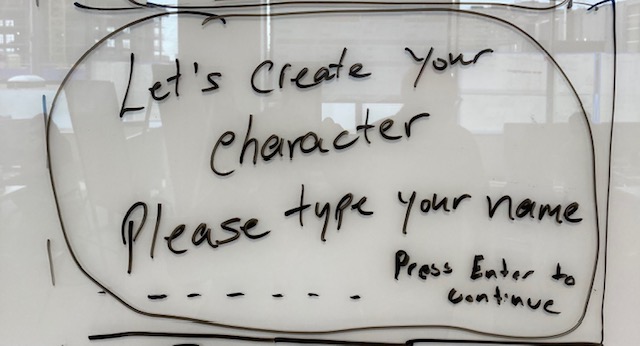 Let's Create Your
Character
Please type your name
Press Enter to
continue
- - - - - - -